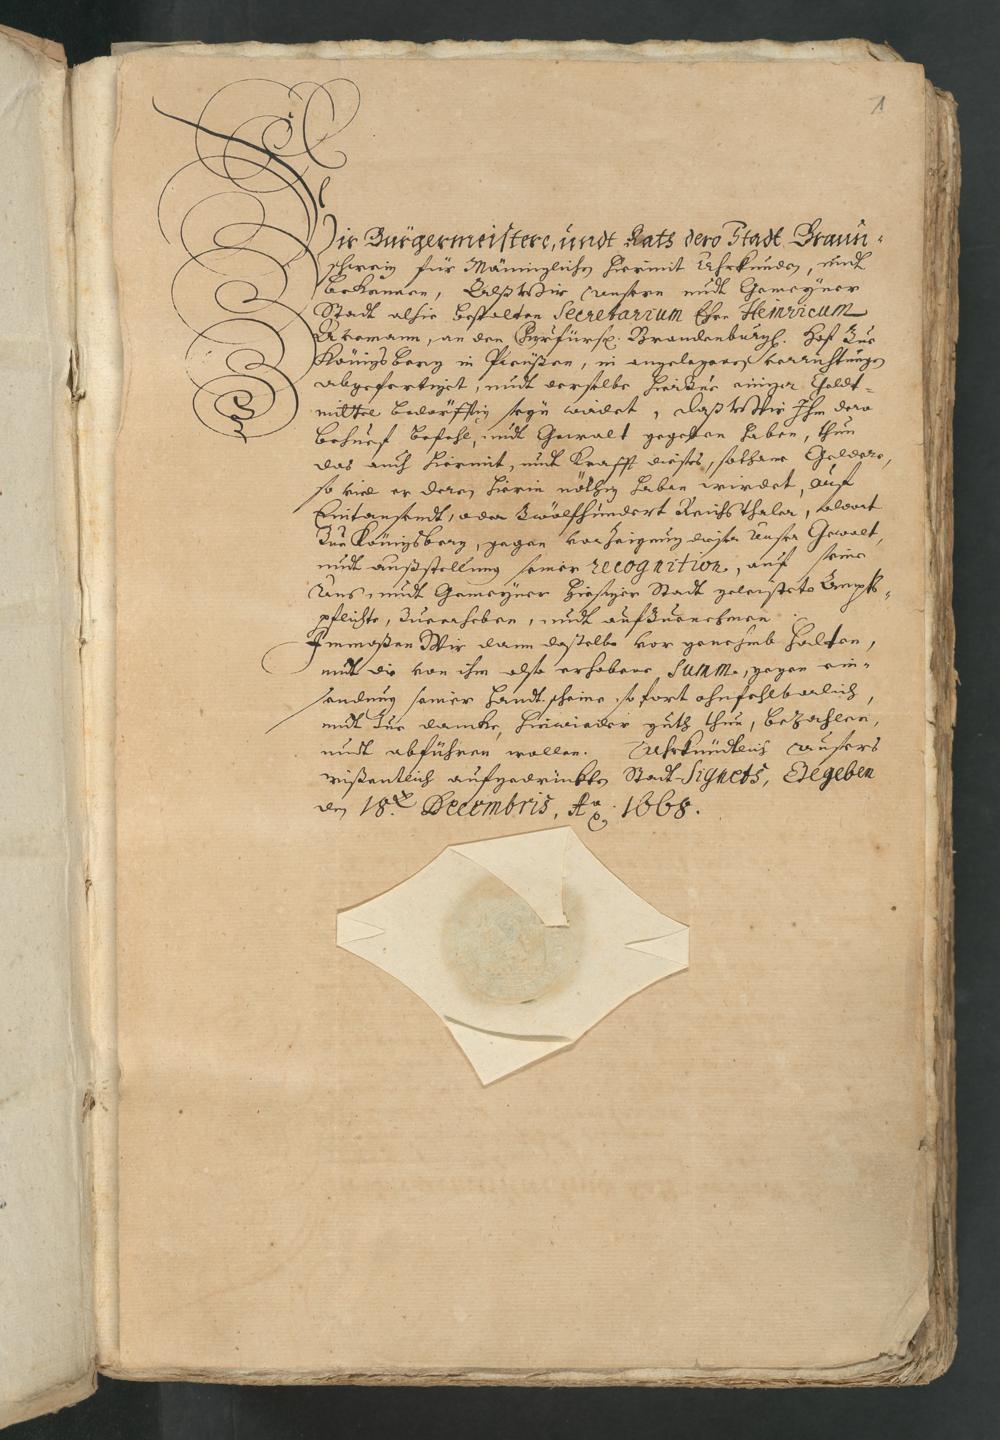 1
Wir Bürgermeistere, undt Rats dero Stadt Braun-
schweig für Männiglichen hiermit Uhrkunden, undt
bekennen, Alß Wir Unsern undt Gemeyner
Stadt alhie bestalten Secretarium Ehrn Heinricum
an den Churfürstl. Brandenburgl. Hof Zue
Königsberg in Preüßen, in angelegenen verrichtungen
abgefertiget, undt derselbe hierzue einiger Geldt-
mittel bedürfftig seyn würdet, Daß Wir Ihm dero
behuef befehl, undt Gewalt gegeben haben, thun
das auch hiermit, undt Krafft dieses, sothane Geldere,
so viel er deren hierin nöthig haben würdet, auf
Eintausendt, oder Zwölfhundert Reichsthaler, aldort
Zue Königsberg, gegen vorzeigung dieser Unser Gewalt,
undt außstellung seiner recognition, auf seine
Uns, undt Gemeyner hiesiger Stadt geleistete Ampts-
pflichte, Zuerheben, undt aufzuenehmen
Immaßen Wir dann dasselbe vor genehmb halten,
undt die von ihm also erhobene Summe, gegen ein-
sendung seiner handtscheine so fort ohnfehlbarlich,
undt Zue dancke, hinwieder guth thun, bezahlen,
undt abführen wollen. Uhrkundtlich Unsers
wißentlich aufgedrückten Stadt-Signets, Gegeben
den 18. Decembris, Ao. 1668.